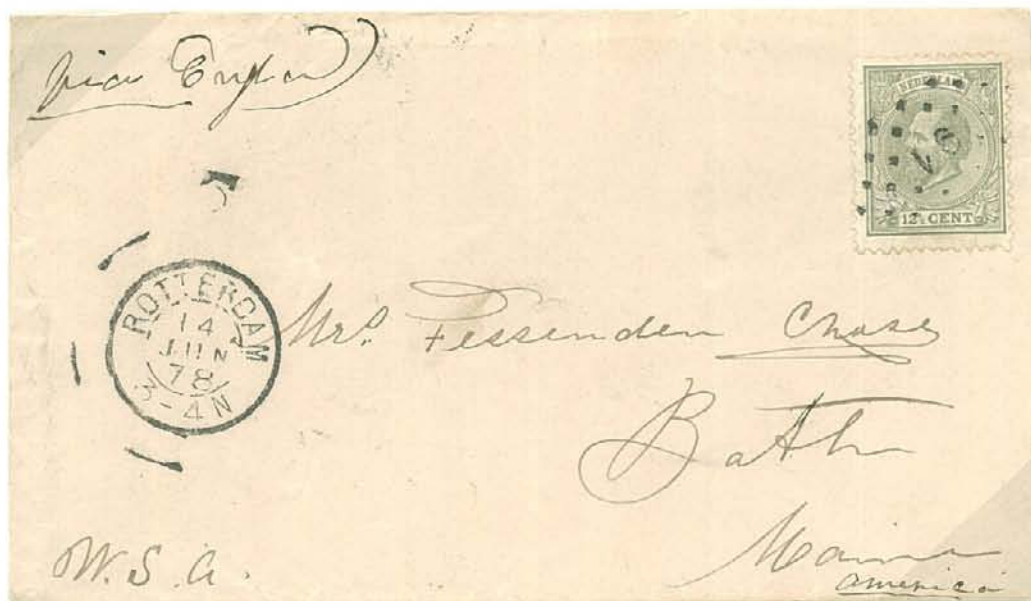 via England
NEDERLAND
91
12½ CENT
ROTTERDAM
14
JUN
78
3-4N
Mrs. Fessenden Chase
Bath
Maine
america
U.S.A.